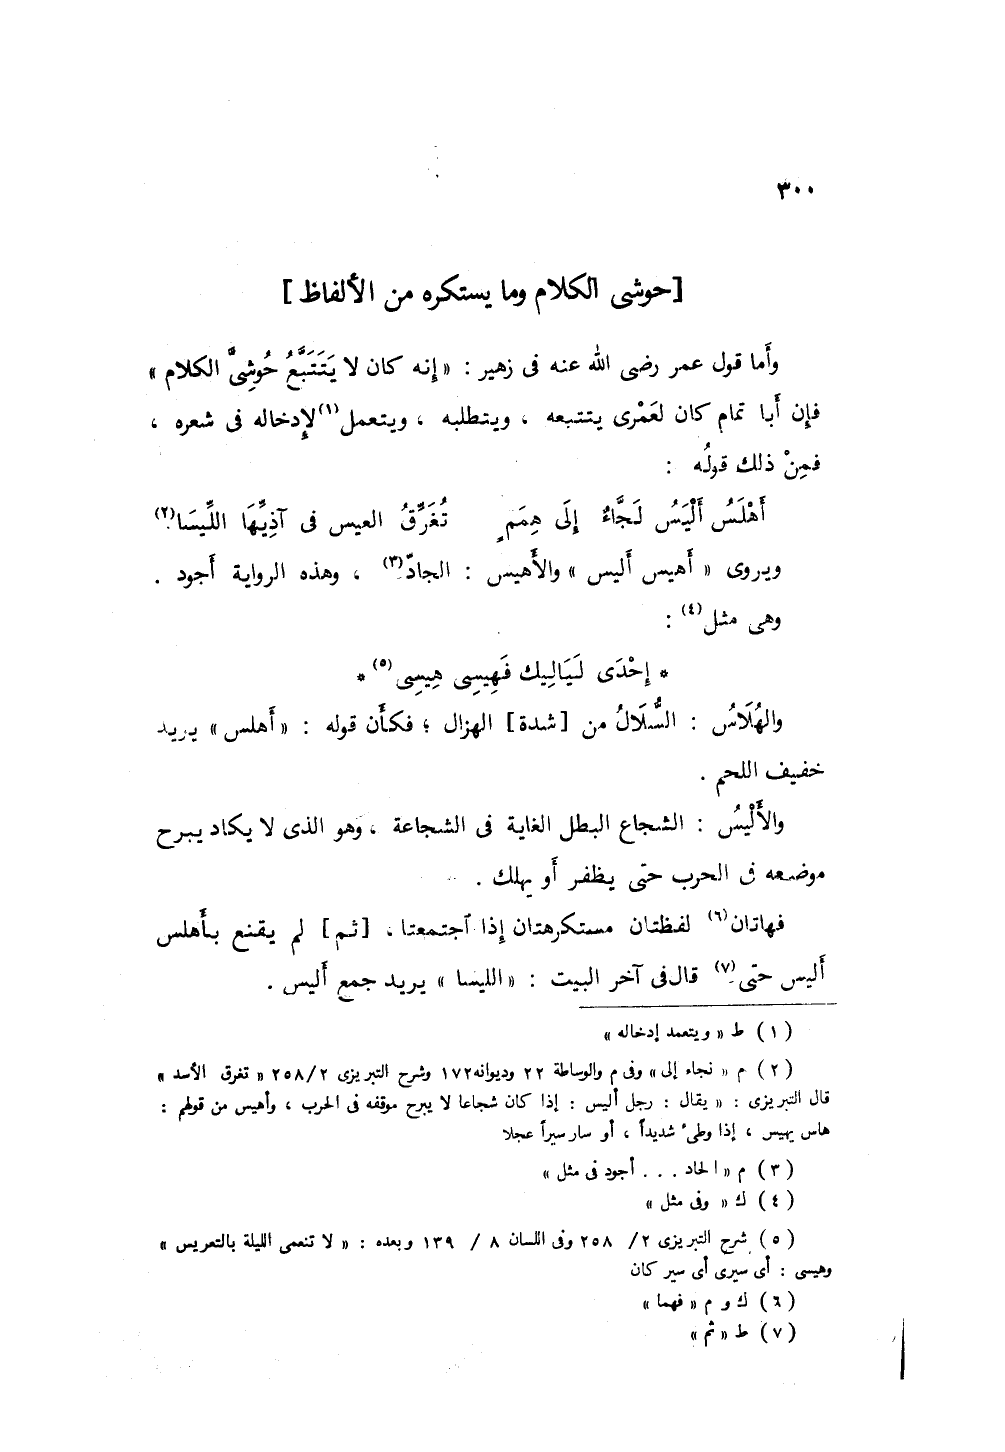 ٣٠٠
[حوشى الكلام وما يستكره من الألفاظ]
وأَما قول عمر رضى الله عنه فى زهير : « إِنه كان لا يَتَتَبَّعُ حُوشِىَّ الكلام »
فإِن أَبا تمام كان لعَمْرى يتتبعه ، ويتطلبه ، ويتعمل(١) لإِدخاله فى شعره ،
فمِنْ ذلك قولُه :
أَهْلَسُ أَلْيَسُ لَجَّاءٌ إِلَى هِمَمٍ تُغَرِّقُ العيس فى آذِيِّهَا اللِّيسَا(٢)
ويروى « أَهيس أَليس » والأَهيس : الجادّ(٣) ، وهذه الرواية أَجود .
وهى مثل(٤) :
* إِحْدَى لَيَالِيك فَهِيسِى هِيسِى(٥) *
والهُلَاسُ : السُّلَالُ من [شدة] الهزال ؛ فكأَن قوله : « أَهلس » يريد
خفيف اللحم .
والأَلْيَسُ : الشجاع البطل الغاية فى الشجاعة ، وهو الذى لا يكاد يبرح
موضعه فى الحرب حتى يظفر أَو يهلك .
فهاتان(٦) لفظتان مستكرهتان إِذا اجتمعتا ، [ثم] لم يقنع بأَهلس
أَليس حتى(٧) قال فى آخر البيت : « الليسا » يريد جمع أَليس .
(١) ط « ويتعمد إدخاله »
(٢) م « نجاء إلى » وفى م والوساطة ٢٢ وديوانه ١٧٢ وشرح التبريزى ٢٥٨/٢ « تفرق الأسد »
قال التبريزى : « يقال : رجل أليس : إذا كان شجاعا لا يبرح موقفه فى الحرب ، وأهيس من قولهم :
هاس يهيس ، إذا وطىء شديداً ، أو سار سيراً عجلا
(٣) م « الحاد . . . أجود فى مثل »
(٤) ك « وفى مثل »
(٥) شرح التبريزى ٢/ ٢٥٨ وفى اللسان ٨ / ١٣٩ وبعده : « لا تنعمى الليلة بالتعريس »
وهيسى : أى سيرى أى سير كان
(٦) ك و م « فهما »
(٧) ط « ثم »